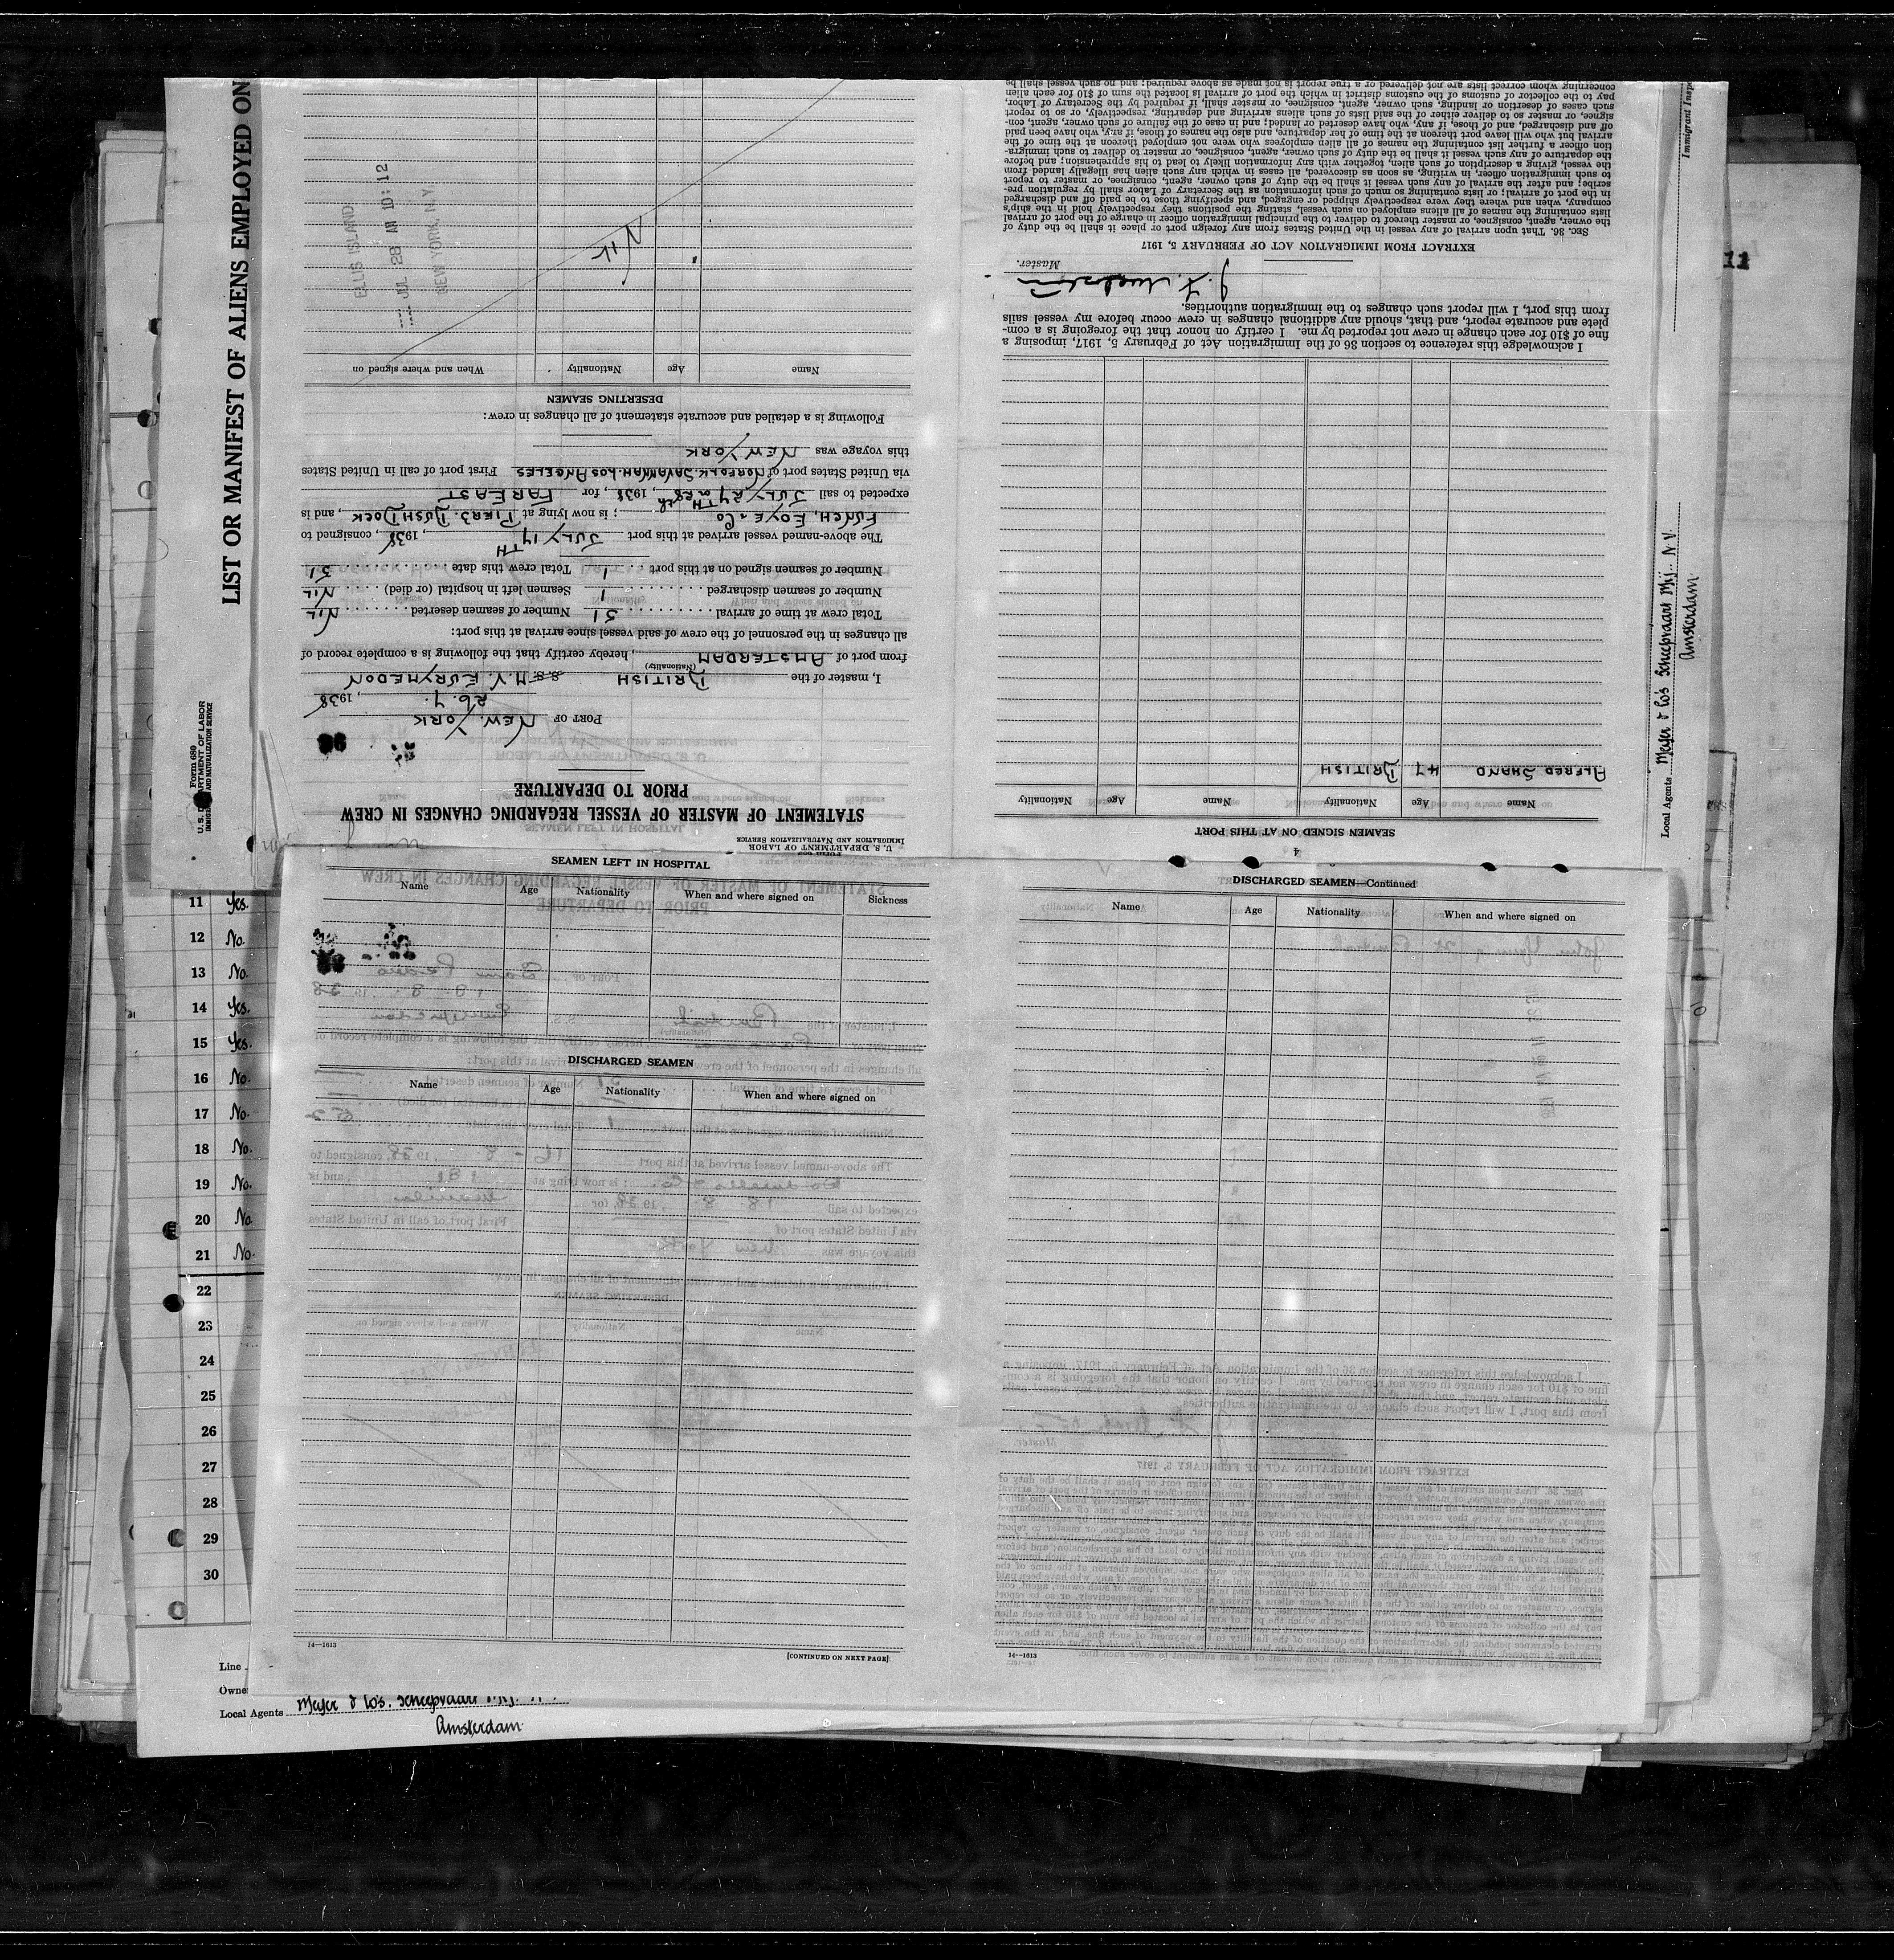 LIST OR MANIFEST OF ALIENS EMPLOYED ON
Form 680
U.S. DEPARTMENT OF LABOR
IMMIGRATION AND NATURALIZATION SERVICE
U. S. DEPARTMENT OF LABOR
IMMIGRATION AND NATURALIZATION SERVICE
STATEMENT OF MASTER OF VESSEL REGARDING CHANGES IN CREW
PRIOR TO DEPARTURE
PORT OF NEW YORK
26.7. , 1938
I, master of the BRITISH S.S. M.V. EURYMEDON
(Nationality)
from port of AMSTERDAM , hereby certify that the following is a complete record of
all changes in the personnel of the crew of said vessel since arrival at this port:
Total crew at time of arrival 51 Number of seamen deserted NIL
Number of seamen discharged 1 Seamen left in hospital (or died) NIL
Number of seamen signed on at this port 1 Total crew this date 51
The above-named vessel arrived at this port JULY 14TH , 1938, consigned to
FUNCH, EDYE & CO ; is now lying at PIER 3. BUSH DOCK , and is
expected to sail JULY 27TH or 28th , 1938, for FAR EAST
via United States port of NORFOLK. SAVANNAH. LOS ANGELES First port of call in United States
this voyage was NEW YORK
Following is a detailed and accurate statement of all changes in crew:
DESERTING SEAMEN
Name Age Nationality When and where signed on
NIL
ELLIS ISLAND
JUL 28 AM 10:12
NEW YORK, N.Y
4
SEAMEN SIGNED ON AT THIS PORT
Name Age Nationality Name Age Nationality
ALFRED SHAND 47 BRITISH
I acknowledge this reference to section 36 of the Immigration Act of February 5, 1917, imposing a
fine of $10 for each change in crew not reported by me. I certify on honor that the foregoing is a com-
plete and accurate report, and that, should any additional changes in crew occur before my vessel sails
from this port, I will report such changes to the immigration authorities.
Master.
EXTRACT FROM IMMIGRATION ACT OF FEBRUARY 5, 1917
SEC. 36. That upon arrival of any vessel in the United States from any foreign port or place it shall be the duty of
the owner, agent, consignee, or master thereof to deliver to the principal immigration officer in charge of the port of arrival
lists containing the names of all aliens employed on such vessel, stating the positions they respectively hold in the ship's
company, when and where they were respectively shipped or engaged, and specifying those to be paid off and discharged
in the port of arrival; or lists containing so much of such information as the Secretary of Labor shall by regulation pre-
scribe; and after the arrival of any such vessel it shall be the duty of such owner, agent, consignee, or master to report
to such immigration officer, in writing, as soon as discovered, all cases in which any such alien has illegally landed from
the vessel, giving a description of such alien, together with any information likely to lead to his apprehension; and before
the departure of any such vessel it shall be the duty of such owner, agent, consignee, or master to deliver to such immigra-
tion officer a further list containing the names of all alien employees who were not employed thereon at the time of the
arrival but who will leave port thereon at the time of her departure, and also the names of those, if any, who have been paid
off and discharged, and of those, if any, who have deserted or landed; and in case of the failure of such owner, agent, con-
signee, or master so to deliver either of the said lists of such aliens arriving and departing, respectively, or so to report
such cases of desertion or landing, such owner, agent, consignee, or master shall, if required by the Secretary of Labor,
pay to the collector of customs of the customs district in which the port of arrival is located the sum of $10 for each alien
concerning whom correct lists are not delivered or a true report is not made as above required; and no such vessel shall be
Local Agents Meyer & Co's Scheepvaart Mij.. N.V.
Amsterdam
11
SEAMEN LEFT IN HOSPITAL
Name Age Nationality When and where signed on Sickness
DISCHARGED SEAMEN
Name Age Nationality When and where signed on
14—1613
[CONTINUED ON NEXT PAGE]
DISCHARGED SEAMEN—Continued
Name Age Nationality When and where signed on
14—1613
11 Yes.
12 No.
13 No.
14 Yes.
15 Yes.
16 No.
17 No.
18 No.
19 No.
20 No
21 No.
22
23
24
25
26
27
28
29
30
Line
Local Agents Meyer & Co's. Scheepvaart
Amsterdam.